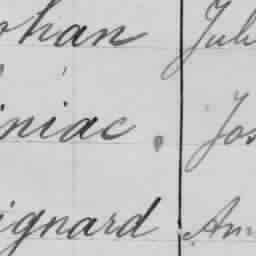 phan Jul
iniac. Jos
ignard An